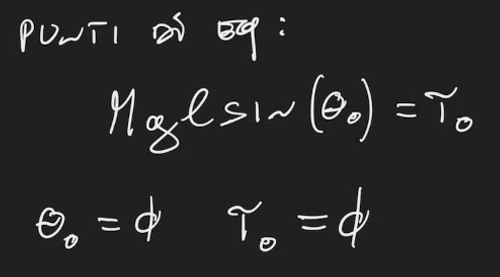 PUNTI di EQ:
Mglsin(θ₀) = τ₀
θ₀ = ϕ τ₀ = ϕ